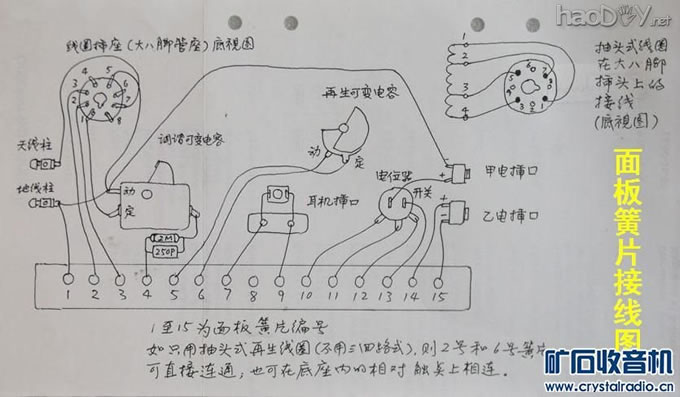 haoDIY.net
线圈插座(大八脚管座)底视图
抽头式线圈
在大八脚
插头上的
接线
(底视图)
4 5
3 6
2 7
1 8
1
5
2
3
4
再生可变电容
动 定
天线柱
地线柱
调谐可变电容
动
定
2M
250P
耳机插口
电位器
开关
甲电插口
乙电插口
+
-
+
-
1 2 3 4 5 6 7 8 9 10 11 12 13 14 15
1至15为面板簧片编号
如只用抽头式再生线圈(不用三四路式),则2号和6号簧片
可直接连通,也可在底座内的相对触点上相连。
面板簧片接线图
矿石收音机
www.crystalradio.cn